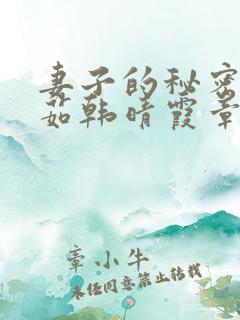 妻子的秘密
茹韩晴霞章
章小牛
未经同意禁止转载